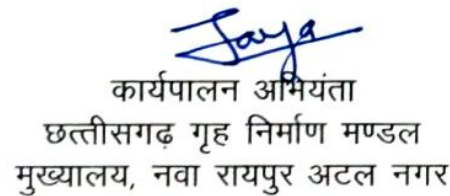 Jaya
कार्यपालन अभियंता
छत्तीसगढ़ गृह निर्माण मण्डल
मुख्यालय, नवा रायपुर अटल नगर